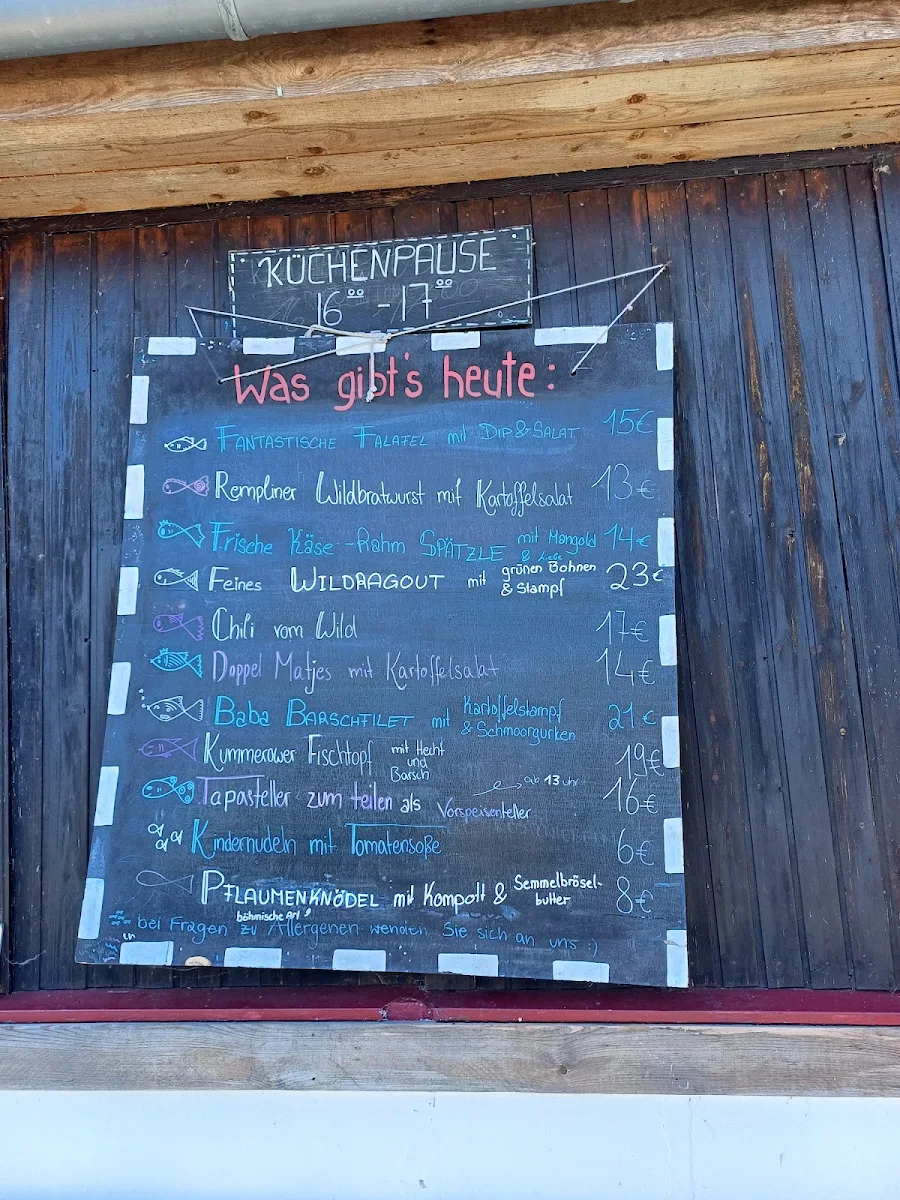 KÜCHENPAUSE
16⁰⁰ - 17⁰⁰
Was gibt's heute:
FANTASTISCHE FALAFEL mit DIP & SALAT 15€
Rempliner Wildbratwurst mit Kartoffelsalat 13€
Frische Käse-Rahm SPÄTZLE mit Mangold & Liebe 14€
Feines WILDRAGOUT mit grünen Bohnen & Stampf 23€
Chili vom Wild 17€
Doppel Matjes mit Kartoffelsalat 14€
Baba BARSCHFILET mit Kartoffelstampf & Schmoorgurken 21€
Kummerower Fischtopf mit Hecht und Barsch 19€
ab 13 uhr
Tapasteller zum teilen als Vorspeisenteller 16€
Kindernudeln mit Tomatensoße 6€
PFLAUMENKNÖDEL mit Kompott & Semmelbrösel-butter 8€
böhmische Art
bei Fragen zu Allergenen wenden Sie sich an uns :)